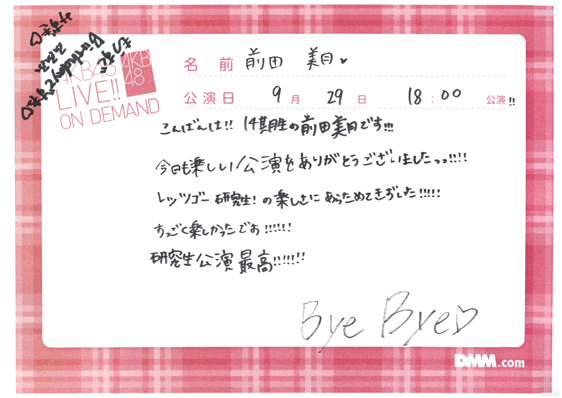 AKB48
LIVE!!
ON DEMAND
AKB
48
名 前 前田 美月♥
公演日 9月 29日 18:00 公演!!
こんばんは!! 14期生の前田美月です!!!
今日も楽しい公演をありがとうございましたっっ!!!!
レッツゴー研究生!の楽しさにあらためてきづきました!!!!!
すっごく楽しかったですぉ!!!!!!
研究生公演最高!!!!!!
Bye Bye♡
DMM.com